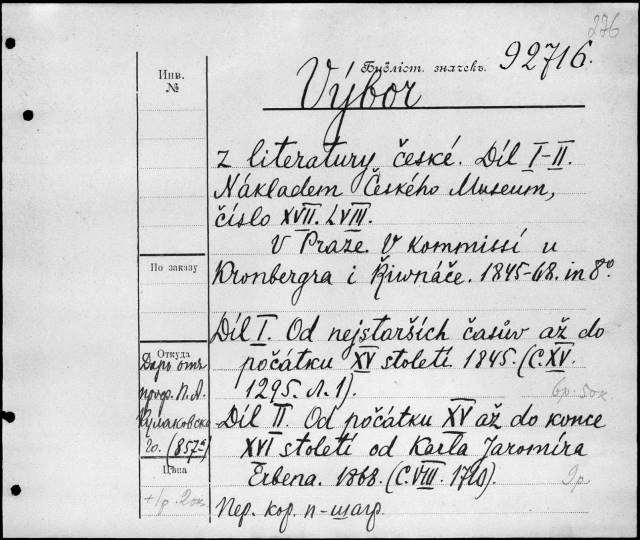 236
Инв.
№
Бібліот. значекъ.
92716.
Výbor
z literatury české. Díl I-II.
Nákladem Českého Museum,
číslo XVII. LVIII.
V Praze. V kommissí u
Kronbergra i Řiwnáče. 1845-68. in 8º
По заказу
Díl I. Od nejstarších časův až do
počátku XV století. 1845. (C. XV.
1295. л. 1).
6р. 50к.
Откуда
Даръ отъ
проф. П. А.
Кулаковска
го. (857ª)
Díl II. Od počátku XV až do konce
XVI století od Karla Jaromíra
Erbena. 1868. (C. VIII. 1710).
Цѣна
+1р. 20к.
2р
Пер. кор. п-шагр.